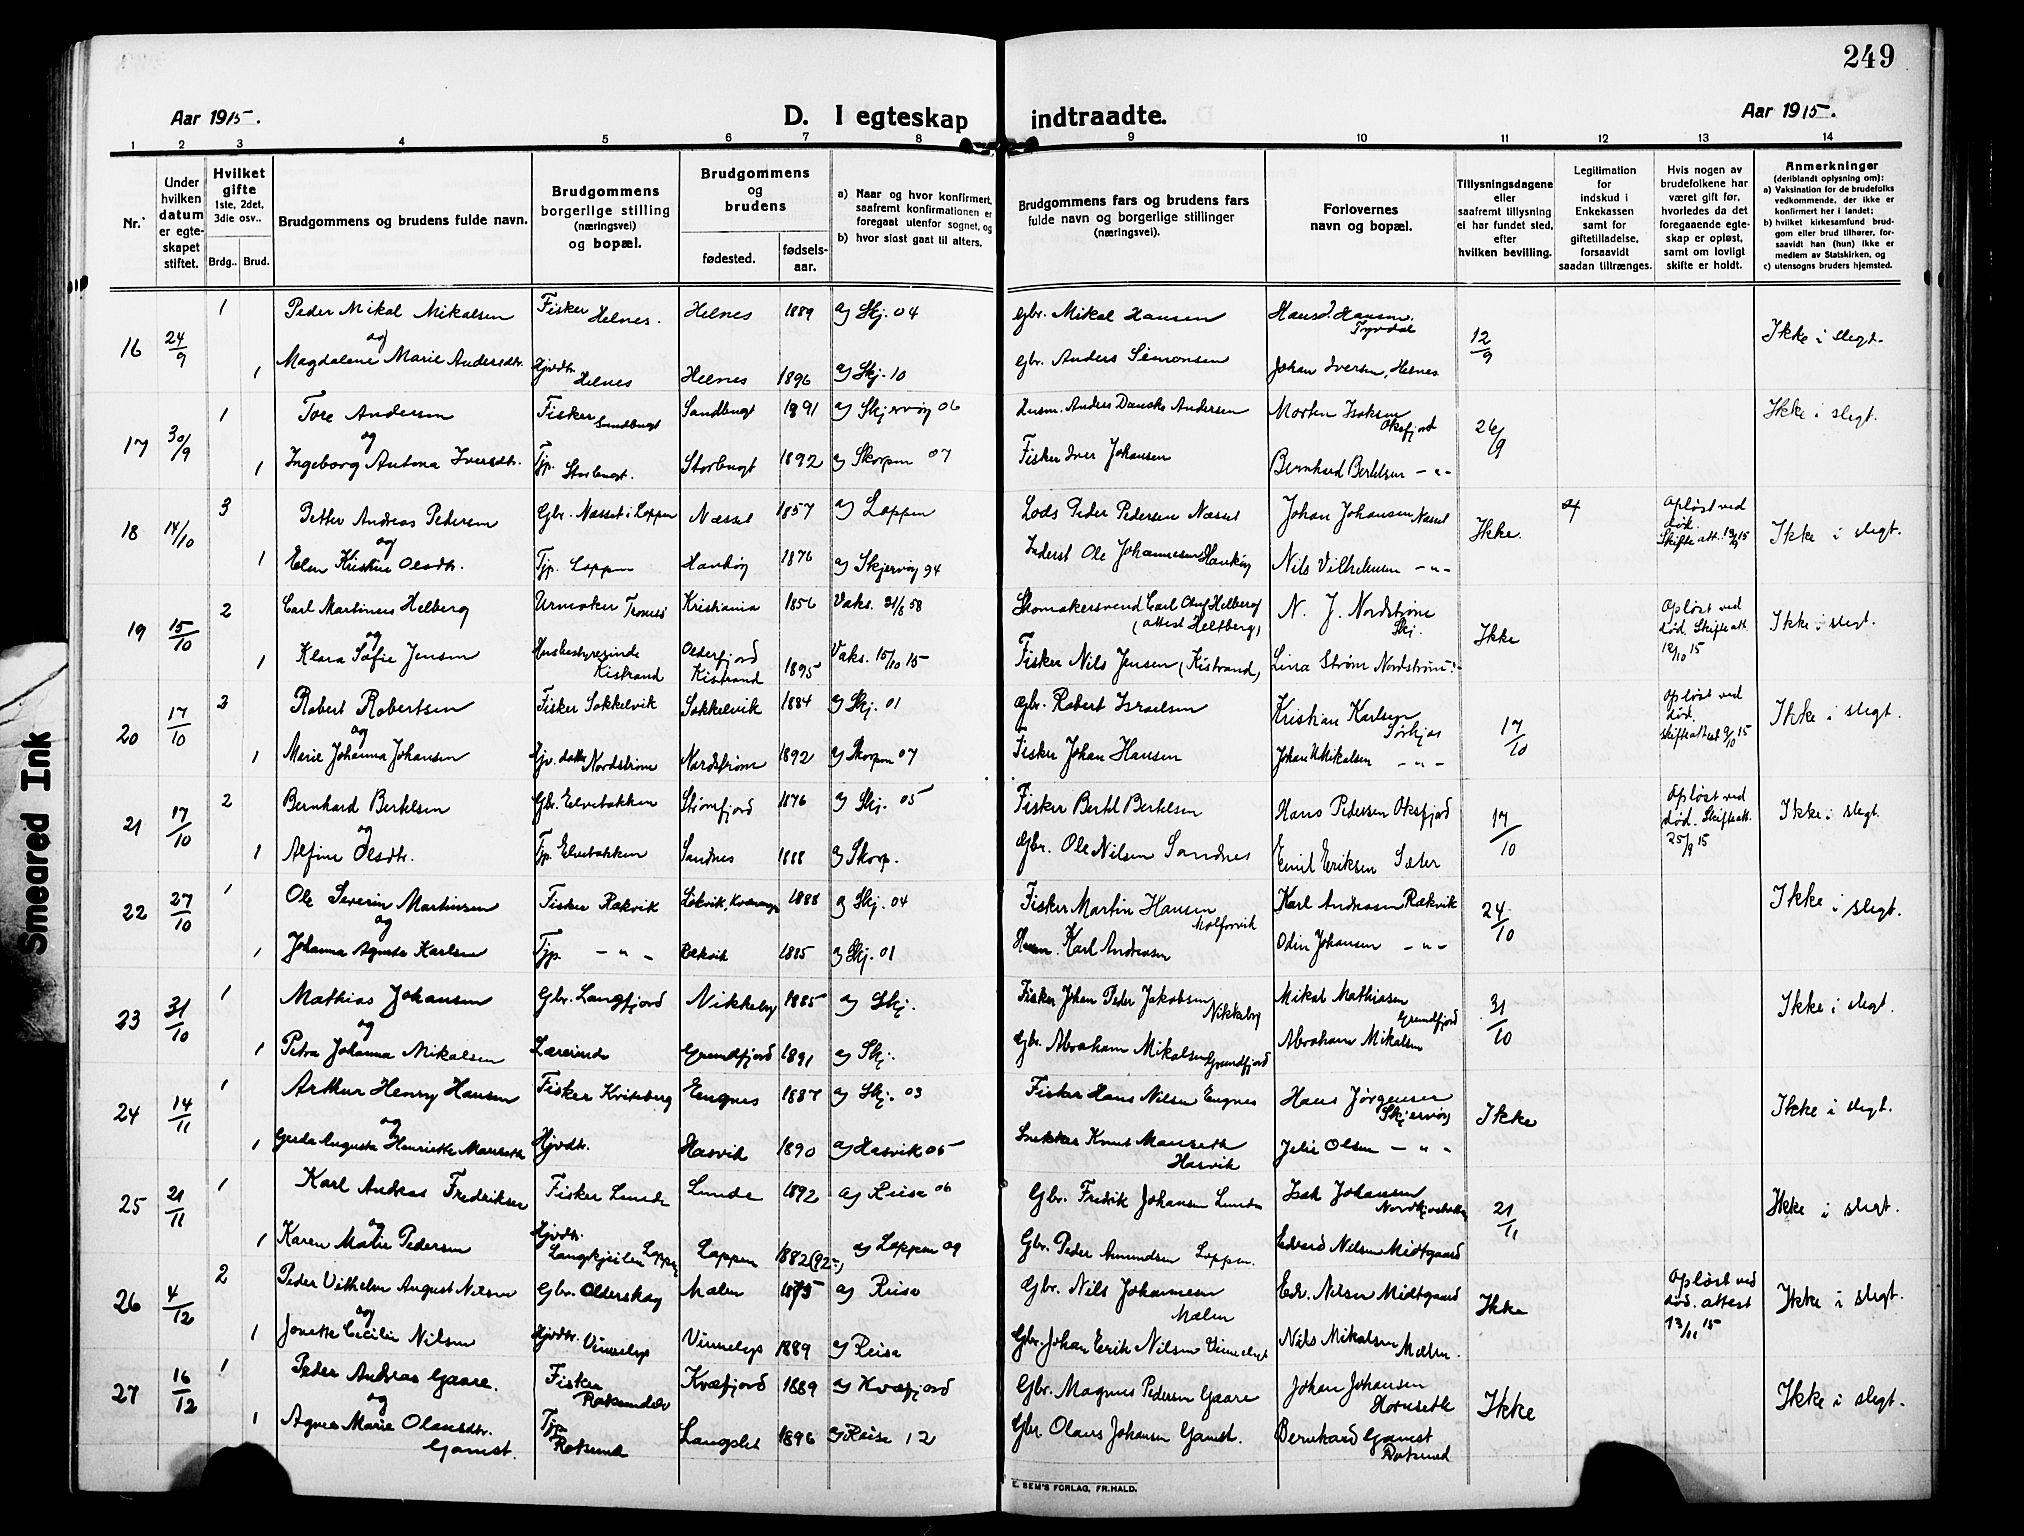 249
Aar 1915.
D. I egteskap indtraadte.
Aar 1915.
1 2 3 4 5 6 7 8 9 10 11 12 13 14
Nr.
Under hvilken datum er egteskapet stiftet.
Hvilket gifte 1ste, 2det, 3die osv..
Brdg.. Brud.
Brudgommens og brudens fulde navn.
Brudgommens borgerlige stilling (næringsvei) og bopæl.
Brudgommens og brudens
fødested.
fødsels-aar.
a) Naar og hvor konfirmert, saafremt konfirmationen er foregaat utenfor sognet, og
b) hvor sidst gaat til alters.
Brudgommens fars og brudens fars fulde navn og borgerlige stillinger (næringsvei).
Forlovernes navn og bopæl.
Tillysningsdagene eller saafremt tillysning ei har fundet sted, efter hvilken bevilling.
Legitimation for indskud i Enkekassen samt for giftetilladelse, forsaavidt saadan tiltrænges.
Hvis nogen av brudefolkene har været gift før, hvorledes da det foregaaende egteskap er opløst, samt om lovligt skifte er holdt.
Anmerkninger (deriblandt oplysning om):
a) Vaksination for de brudefolks vedkommende, der ikke er konfirmert her i landet;
b) hvilket kirkesamfund brudgom eller brud tilhører, forsaavidt han (hun) ikke er medlem av Statskirken, og
c) utensogns bruders hjemsted.
16 24/9 1 Peder Mikal Mikalsen Fisker Helnes. Helnes 1889 a) Skj. 04 Gbr. Mikal Hansen Hans J. Hansen Tyvdal 12/9 Ikke i slegt.
og
1 Magdalene Marie Andersdtr. Hjvdtr. Helnes Helnes 1896 a) Skj. 10 Gbr. Anders Simonsen Johan Iversen, Helnes
17 30/9 1 Tore Andersen Fisker Sandbugt Sandbugt 1891 a) Skjervøy 06 Husm. Anders Danske Andersen Morten Isaksen Oksfjord 26/9 Ikke i slegt.
og
1 Ingeborg Antona Iversdtr. Tjp. Storbugt. Storbugt 1892 a) Skorpen 07 Fisker Iver Johansen Bernhard Bertelsen - " -
18 14/10 3 Petter Andreas Pedersen Gbr. Næsset i Loppen Næsset 1857 a) Loppen Lods Peder Pedersen Næsset Johan Johansen Næsset Ikke. Opløst ved død. Skifte att. 13/9 15 Ikke i slegt.
og
1 Elen Kristine Olsdtr. Tjp. Loppen Haukøy 1876 a) Skjervøy 94 Inderst Ole Johannesen Haukøy Nils Vilhelmsen - " -
19 15/10 2 Carl Martinius Helberg Urmaker Tromsø Kristiania 1856 Vaks. 21/6 58 Skomakersvend Carl Oluf Helberg (attest Heltberg) N. J. Nordstrøm Skj. Ikke Opløst ved død. Skifteatt. 12/10 15 Ikke i slegt.
og
1 Klara Sofie Jensen Husbestyrerinde Kistrand Olderfjord Kistrand 1895 Vaks. 15/10 15 Fisker Nils Jensen (Kistrand) Lina Strøm Nordstrøm
20 17/10 2 Robert Robertsen Fisker Sokkelvik Sokkelvik 1884 a) Skj. 01 Gbr. Robert Israelsen Kristian Karlsen Sørkjos 17/10 Opløst ved død. skifteattest 9/10 15 Ikke i slegt.
og
1 Marie Johanna Johansen Hjv. datter Nordstrøm Nordstrøm 1892 a) Skorpen 07 Fisker Johan Hansen Johan U Mikalsen - " -
21 17/10 2 Bernhard Bertelsen Gbr. Elvebakken Strømfjord 1876 a) Skj. 05 Fisker Bertel Bertelsen Hans Pedersen Oksfjord 17/10 Opløst ved død. Skifteatt. 25/9 15 Ikke i slegt.
og
1 Alfine Olsdtr. Tjp. Elvebakken Sandnes 1888 a) Skorp. Gbr. Ole Nilsen Sandnes Emil Eriksen Sæter
22 27/10 1 Ole Severin Martinsen Fisker Rakvik Løkvik, Kvænange 1888 a) Skj. 04 Fisker Martin Hansen Molforvik Karl Andreasen Rakvik 24/10 Ikke i slegt.
og
1 Johanna Agneta Karlsen Tjp. - " - Rakvik 1885 a) Skj. 01 Husm. Karl Andreasen Odin Johansen - " -
23 31/10 1 Mathias Johansen Gbr. Langfjord Nikkeby 1885 a) Skj. Fisker Johan Peder Jakobsen Nikkeby Mikal Mathiasen Grundfjord 31/10 Ikke i slegt.
og
1 Petra Johanna Mikalsen Lærerinde Grundfjord 1891 a) Skj. Gbr. Abraham Mikalsen Grundfjord Abraham Mikalsen
24 14/11 1 Arthur Henry Hansen Fisker Kviteberg Engnes 1887 a) Skj. 03 Fisker Hans Nilsen Engnes Hans Jørgensen Skjervøy Ikke Ikke i slegt.
og
1 Gerda Augusta Henriette Mauseth Hjvdtr. Hasvik 1890 a) Hasvik 05 Snekker Knut Mauseth Hasvik Jelie Olsen - " -
25 21/11 1 Karl Andreas Fredriksen Fisker Lunde Lunde 1892 a) Reisa 06 Gbr. Fredrik Johansen Lunde Isak Johansen Nordkjosbotten 21/11 Ikke i slegt.
og
1 Karen Marie Pedersen Hjvdtr. Langkjeilen Loppen Loppen 1882 (92) a) Loppen 09 Gbr. Peder Amundsen Loppen. Edvard Nilsen Midtgaard
26 4/12 2 Peder Vilhelm August Nilsen Gbr. Olderskog Malen 1875 a) Reisa Gbr. Nils Johannesen Malen Edv. Nilsen Midtgaard Ikke Opløst ved død. attest 13/11 15 Ikke i slegt.
og
1 Jonette Cecilie Nilsen Hjvdtr. Vinnelys Vinnelys 1889 a) Reisa Gbr. Johan Erik Nilsen Vinnelys Nils Mikalsen Malen.
27 16/12 1 Peder Andreas Gaare. Fisker Rotsundelv Kvæfjord 1889 a) Kvæfjord Gbr. Magnus Pedersen Gaare Johan Johansen Hornseth Ikke Ikke i slegt.
og
1 Agnes Marie Olausdtr. Gamst. Tjp. Rotsund Langslet 1896 a) Reisa 12 Gbr Olaus Johansen Gamst. Bernhard Gamst Rotsund
E. SEM'S FORLAG, FR.HALD.
Smeared Ink